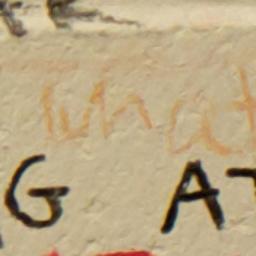 what
G AT